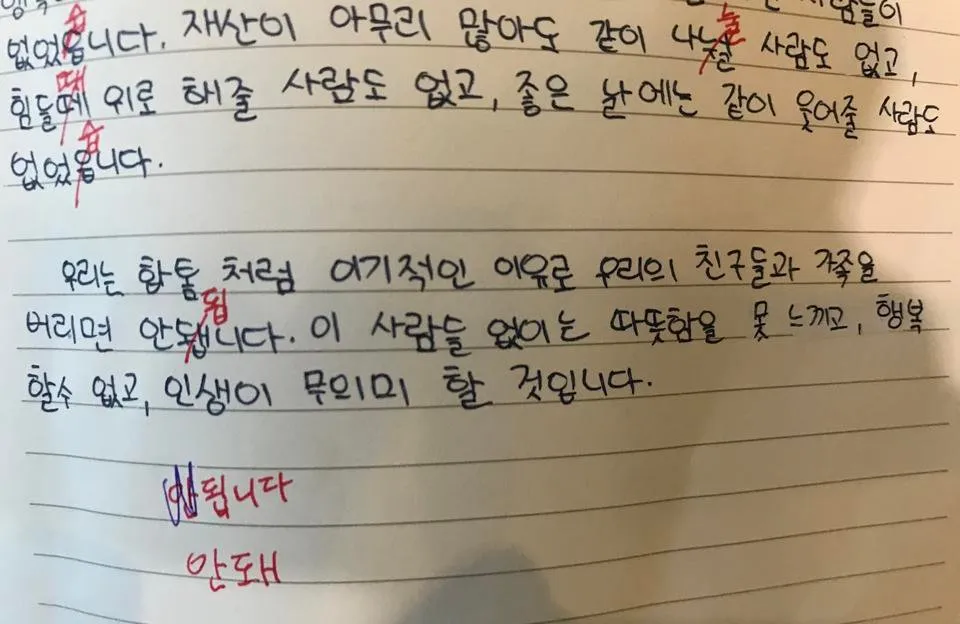 사람들이
습
없었읍니다. 재산이 아무리 많아도 같이 나눚 사람도 없고,
눌
때
힘들떼 위로 해줄 사람도 없고, 좋은 날에는 같이 웃어줄 사람도
습
없었읍니다.
우리는 함톰 처럼 이기적인 이유로 우리의 친구들과 가족을
됩
버리면 안됍니다. 이 사람들 없이는 따뜻함을 못 느끼고, 행복
할수 없고, 인생이 무의미 할 것입니다.
안됩니다
안돼